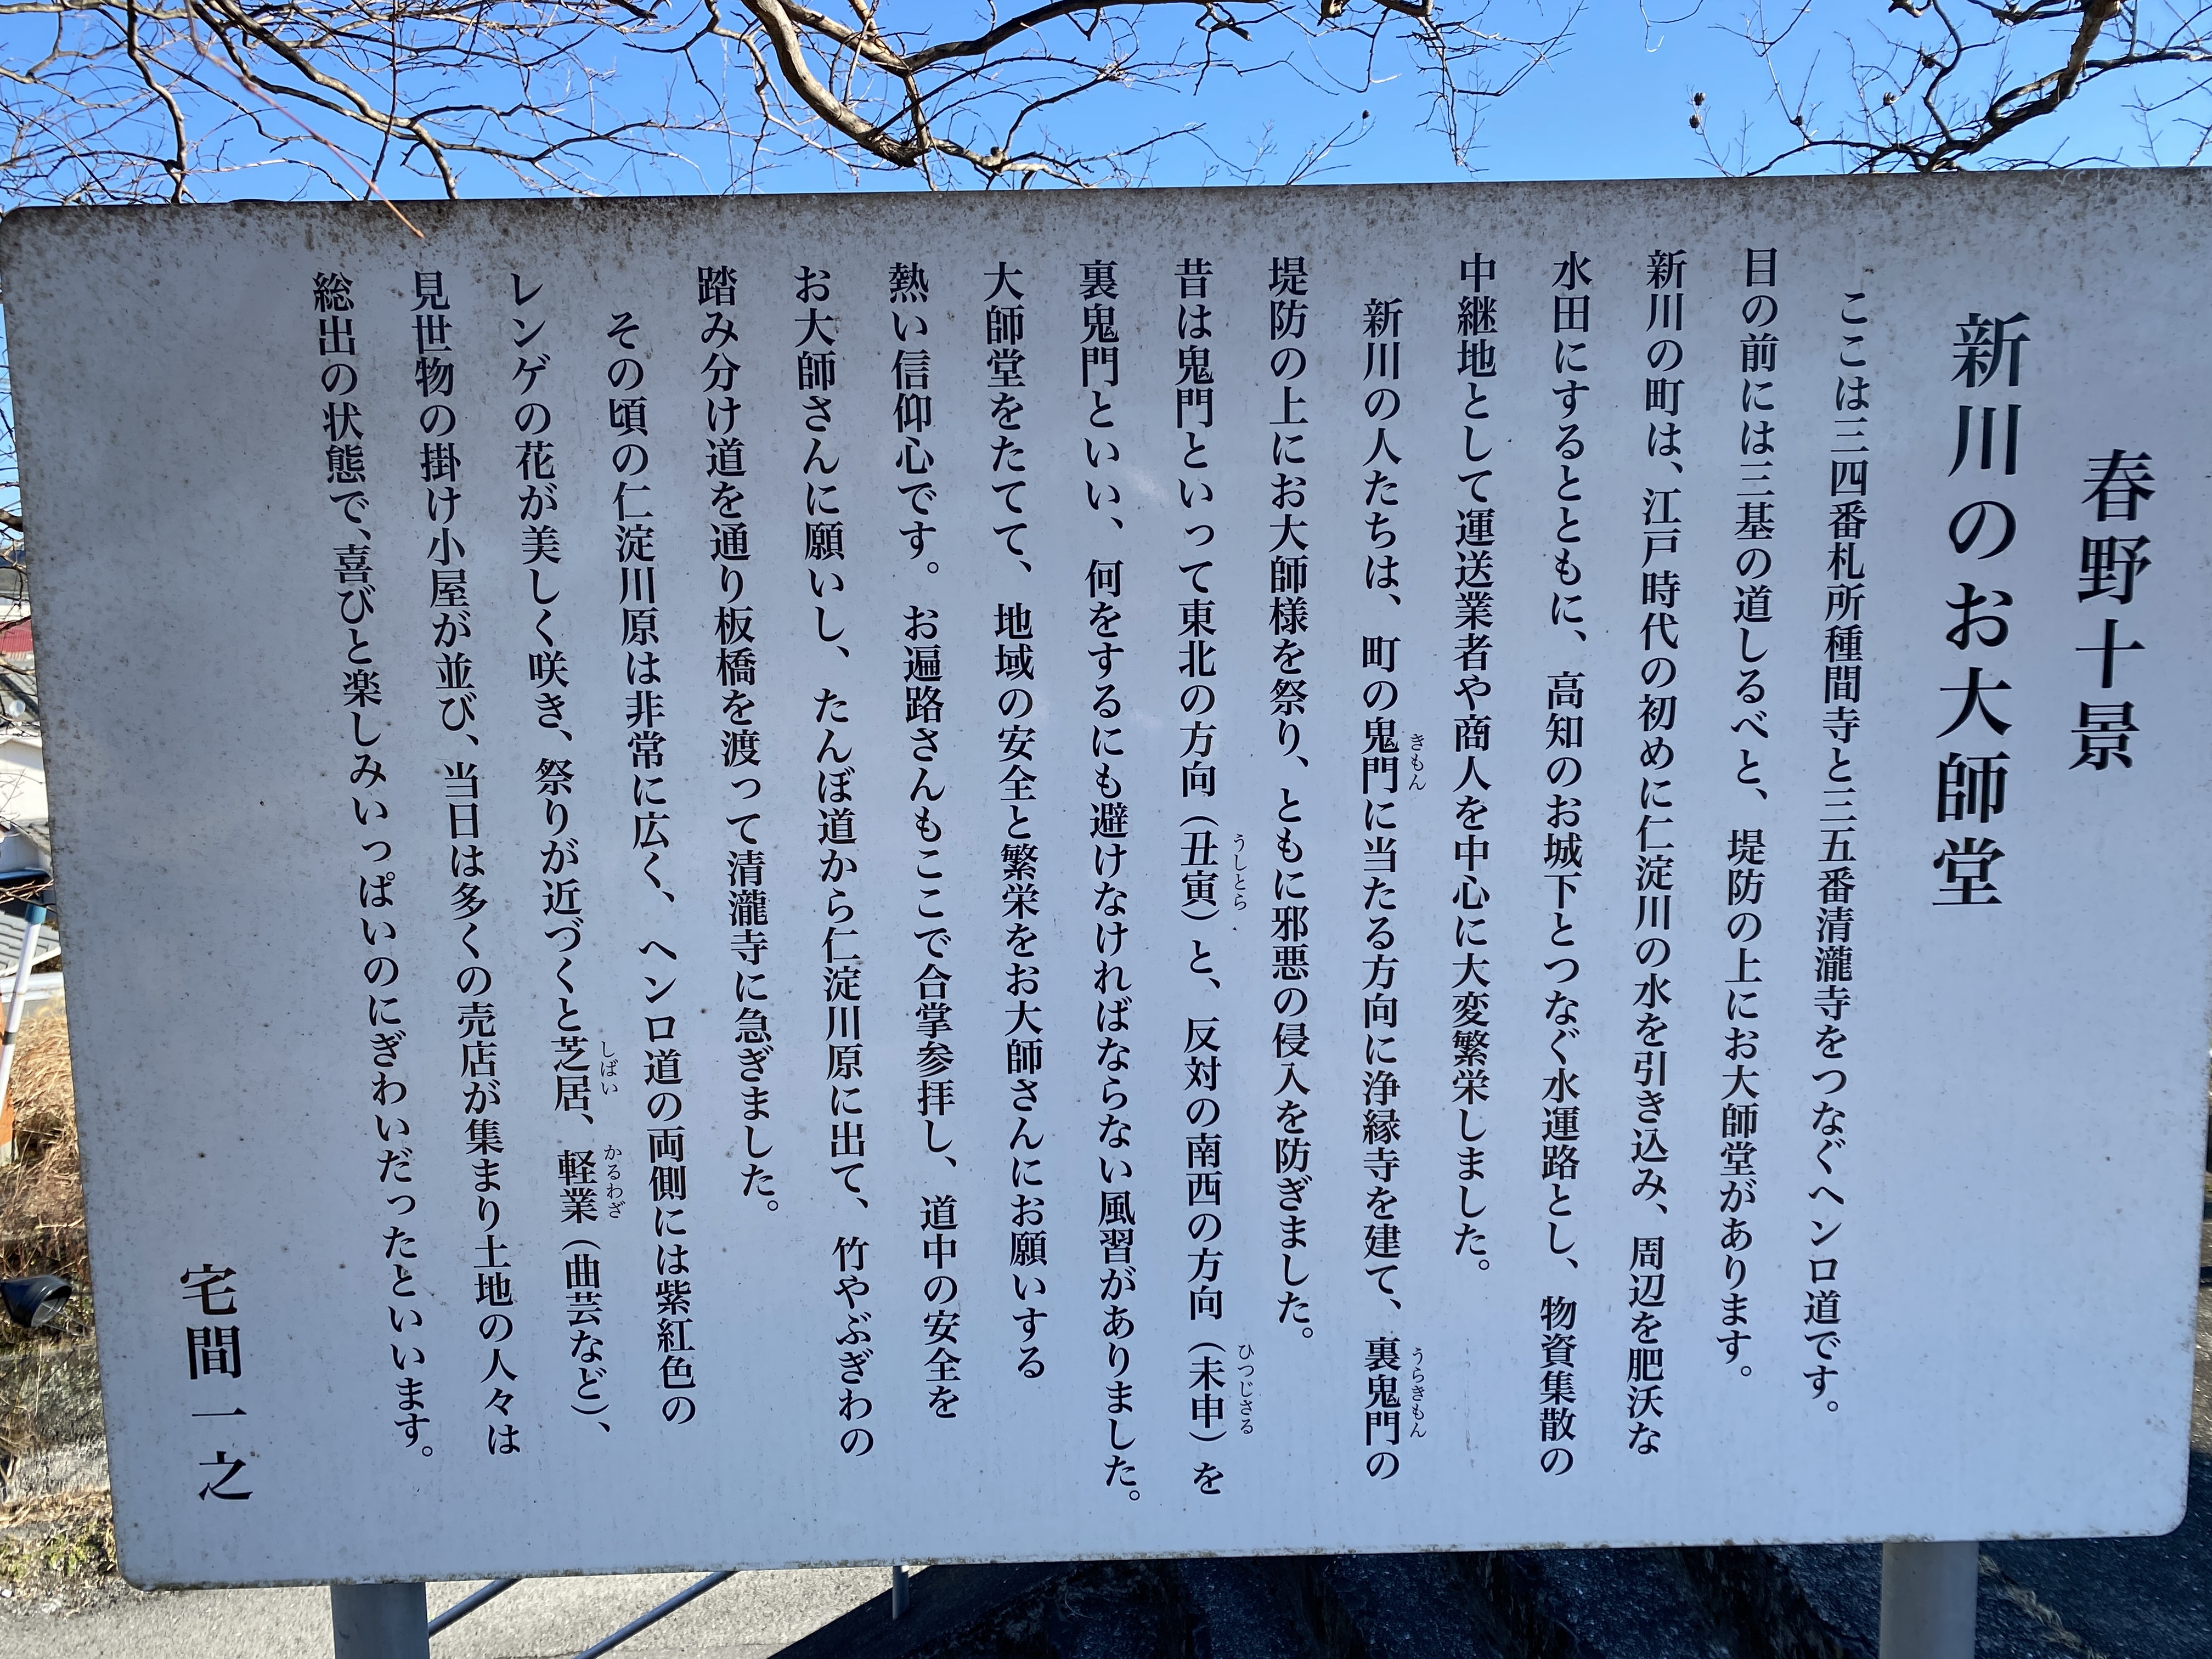 春野十景
新川のお大師堂
ここは三四番札所種間寺と三五番清瀧寺をつなぐヘンロ道です。
目の前には三基の道しるべと、堤防の上にお大師堂があります。
新川の町は、江戸時代の初めに仁淀川の水を引き込み、周辺を肥沃な
水田にするとともに、高知のお城下とつなぐ水運路とし、物資集散の
中継地として運送業者や商人を中心に大変繁栄しました。
新川の人たちは、町の鬼門に当たる方向に浄縁寺を建て、裏鬼門の
きもん
うらきもん
堤防の上にお大師様を祭り、ともに邪悪の侵入を防ぎました。
昔は鬼門といって東北の方向（丑寅）と、反対の南西の方向（未申）を
うしとら
ひつじさる
裏鬼門といい、何をするにも避けなければならない風習がありました。
大師堂をたてて、地域の安全と繁栄をお大師さんにお願いする
熱い信仰心です。お遍路さんもここで合掌参拝し、道中の安全を
お大師さんに願いし、たんぼ道から仁淀川原に出て、竹やぶぎわの
踏み分け道を通り板橋を渡って清瀧寺に急ぎました。
その頃の仁淀川原は非常に広く、ヘンロ道の両側には紫紅色の
レンゲの花が美しく咲き、祭りが近づくと芝居、軽業（曲芸など）、
しばい
かるわざ
見世物の掛け小屋が並び、当日は多くの売店が集まり土地の人々は
総出の状態で、喜びと楽しみいっぱいのにぎわいだったといいます。
宅間一之